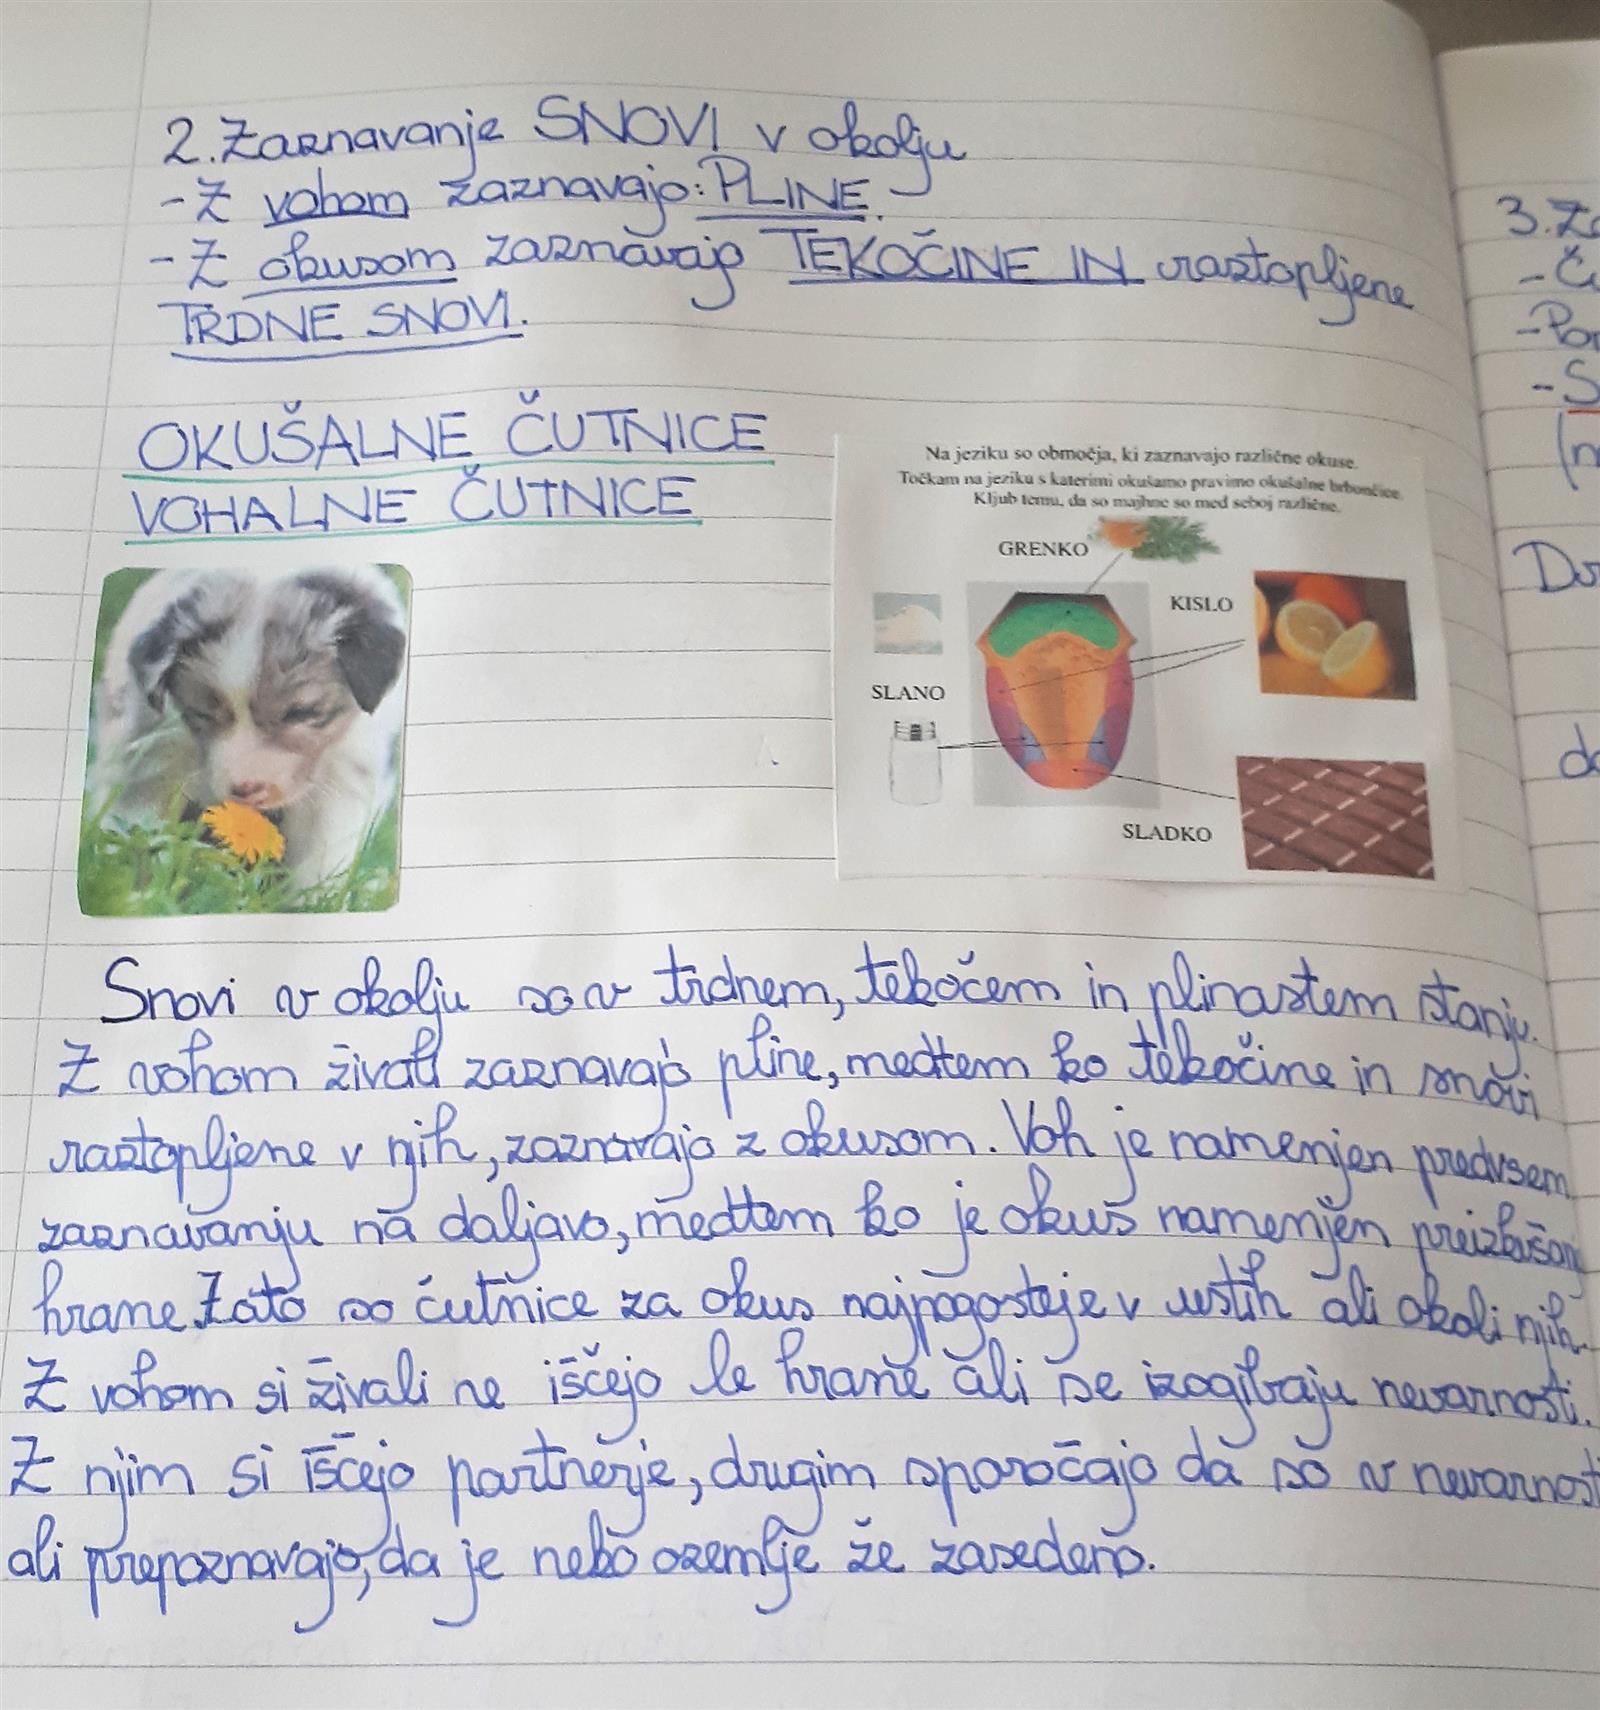 2. Zaznavanje SNOVI v okolju
- Z vohom zaznavajo: PLINE.
- Z okusom zaznavajo TEKOČINE IN raztopljene
TRDNE SNOVI.
OKUŠALNE ČUTNICE
VOHALNE ČUTNICE
Na jeziku so območja, ki zaznavajo različne okuse.
Točkam na jeziku s katerimi okušamo pravimo okušalne brbončice.
Kljub temu, da so majhne so med seboj različne.
GRENKO
KISLO
SLANO
SLADKO
Snovi v okolju so v trdnem, tekočem in plinastem stanju.
Z vohom živali zaznavajo pline, medtem ko tekočine in snovi
raztopljene v njih, zaznavajo z okusom. Voh je namenjen predvsem
zaznavanju na daljavo, medtem ko je okus namenjen
hrane Zato so čutnice za okus najpogosteje v ustih ali okoli njih.
Z vohom si živali ne iščejo le hrane ali se izogibaju nevarnosti.
Z njim si iščejo partnerje, drugim sporočajo da so v nevarnosti
ali prepoznavajo, da je nebo ozemlje že zasedeno.
3. Za
- Ču
- Po
- S
(n
Du
do